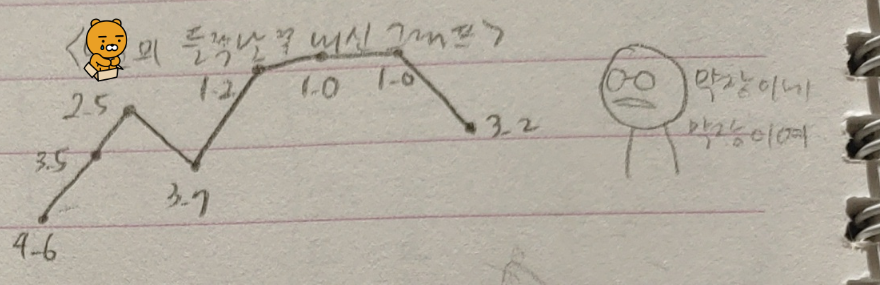 <의 들쑥날쑥 내신 그래프>
2.5
1.2
1.0
1.0
3.5
3.7
3.2
4.6
막장이네
막장이여